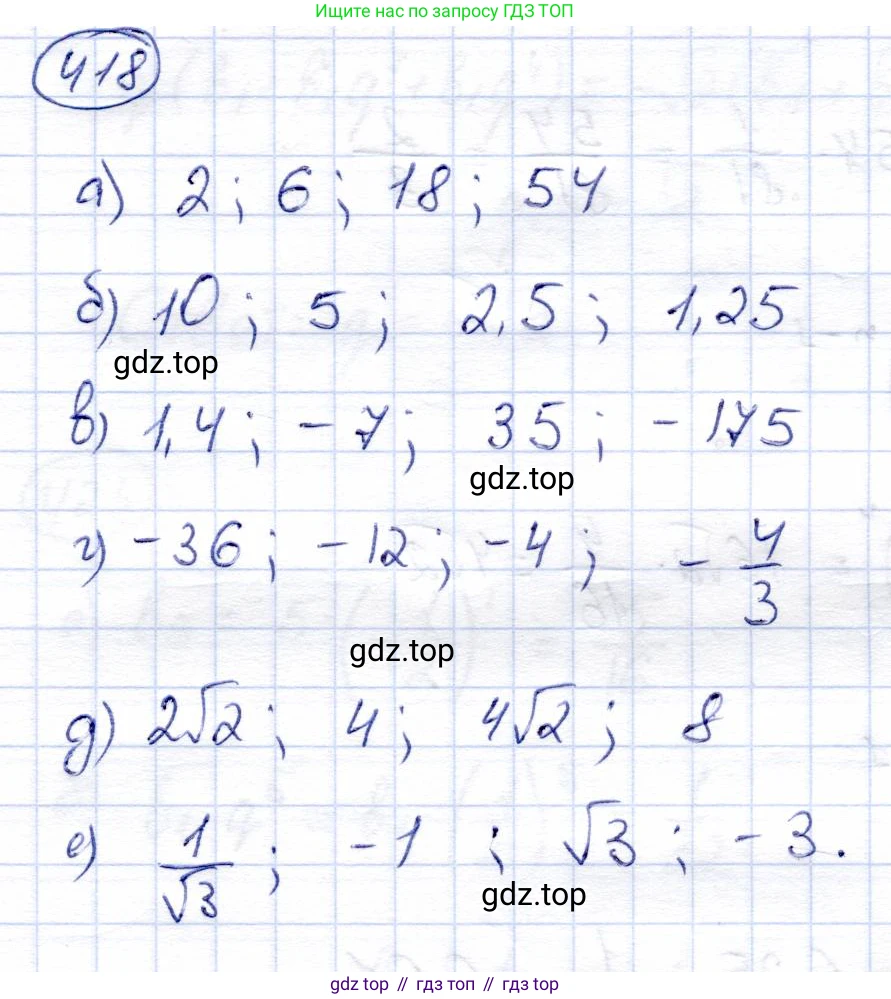 Ищите нас по запросу ГДЗ ТОП
418
а) 2; 6; 18; 54
б) 10; 5; 2,5; 1,25
gdz.top
в) 1,4; -7; 35; -175
gdz.top
г) -36; -12; -4; -4/3
gdz.top
д) 2√2; 4; 4√2; 8
е) 1/√3; -1; √3; -3.
gdz.top
gdz top // гдз топ // gdz top